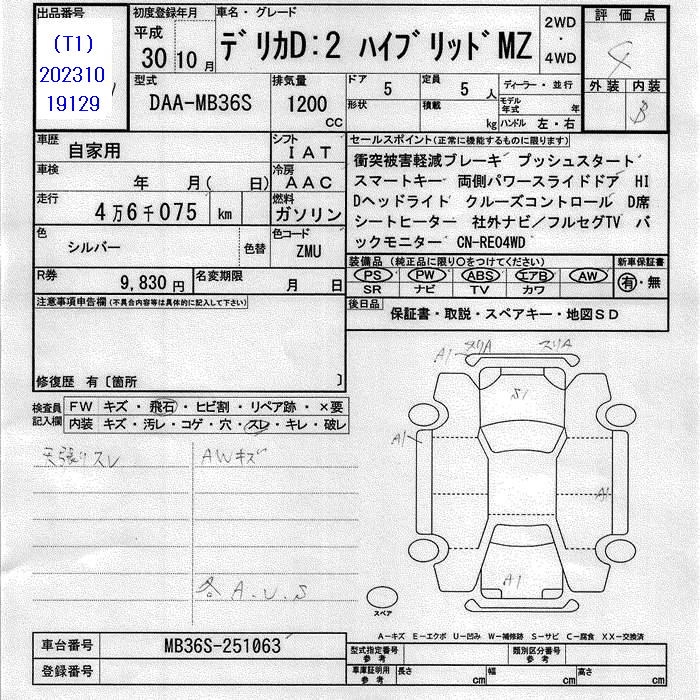 出品番号
(T1)
202310
19129
初度登録年月
平成
30 10 月
車名・グレード
デリカD:2 ハイブリッド MZ
2WD
・
4WD
評価点
4
外装 内装
B
型式
DAA-MB36S
排気量
1200
CC
ドア
5
定員
5 人
形状
積載
kg
ディーラー・並行
モデル年式 年
ハンドル 左・右
車歴
自家用
シフト
IAT
車検
年 月( 日)
冷房
AAC
走行
4万6千075 km
燃料
ガソリン
色
シルバー
色替
色コード
ZMU
R券
9,830円
名変期限
月 日
セールスポイント(正常に機能するものに限ります)
衝突被害軽減ブレーキ プッシュスタート
スマートキー 両側パワースライドドア HI
Dヘッドライト クルーズコントロール D席
シートヒーター 社外ナビ/フルセグTV バ
ックモニター CN-RE04WD
装備品 (純正品に限り○をつけてください)
PS PW ABS エアB AW
SR ナビ TV カワ
新車保証書
有・無
後日品
保証書・取説・スペアキー・地図SD
注意事項申告欄(不具合内容等は具体的に記入して下さい)
修復歴 有〔箇所 〕
検査員
記入欄
FW キズ・飛石・ヒビ割・リペア跡・×要
内装 キズ・汚レ・コゲ・穴・スレ・キレ・破レ
天張りスレ
AWキズ
各A.U.S
A1 スリA スリA
S1
A1
A1
A1
スペア
A－キズ E－エクボ U－凹み W－補修跡 S－サビ C－腐食 XX－交換済
車台番号
MB36S-251063
登録番号
型式指定番号
参考
類別区分番号
参考
車庫証明用
参考
長さ cm 幅 cm 高さ cm